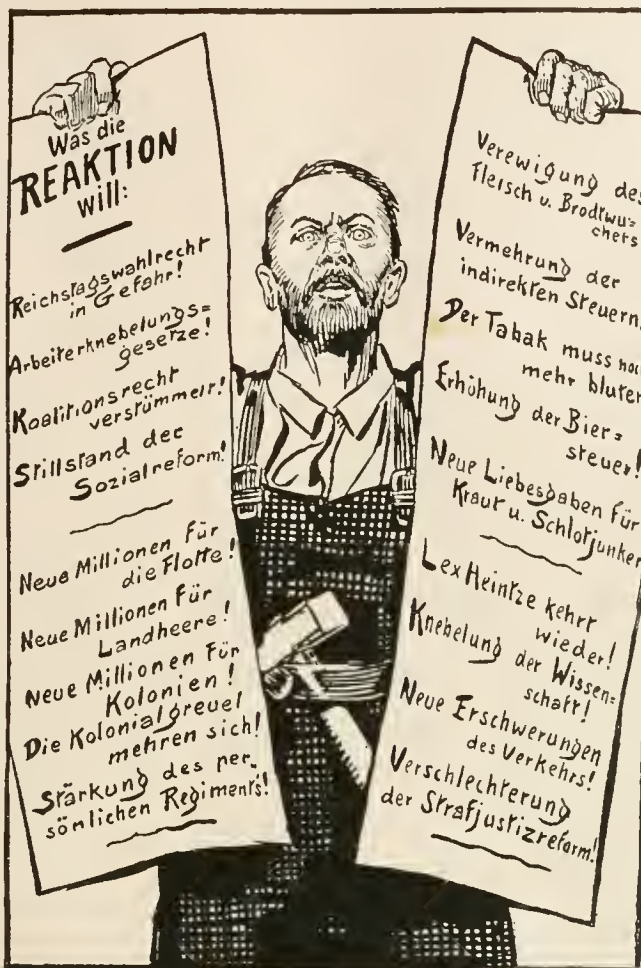 Was die
REAKTION
will:
Reichstagswahlrecht
in Gefahr!
Arbeiterknebelungs=
gesetze!
Koalitionsrecht
verstümmelt!
Stillstand der
Sozialreform!
Neue Millionen für
die Flotte!
Neue Millionen für
Landheere!
Neue Millionen für
Kolonien!
Die Kolonialgreuel
mehren sich!
Stärkung des per=
sönlichen Regiments!
Verewigung des
Fleisch u. Brodtwu=
chers
Vermehrung der
indirekten Steuern.
Der Tabak muss noc
mehr bluten
Erhöhung der Bier=
steuer!
Neue Liebesgaben für
Kraut u. Schlotjunker
Lex Heintze kehrt
wieder!
Knebelung der Wissen=
schaft!
Neue Erschwerungen
des Verkehrs!
Verschlechterung
der Strafjustizreform!